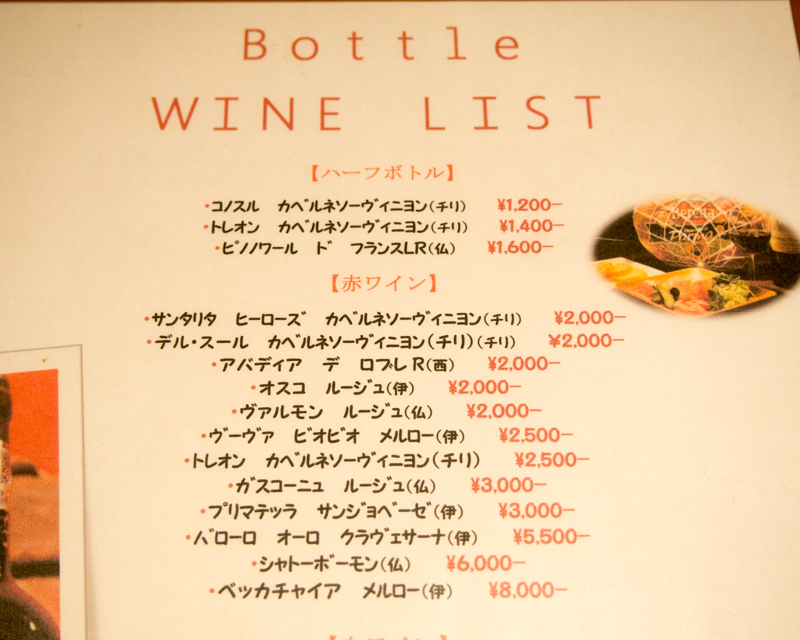 Bottle
WINE LIST
【ハーフボトル】
・コノスル カベルネソーヴィニヨン(チリ) ¥1,200−
・トレオン カベルネソーヴィニヨン(チリ) ¥1,400−
・ピノノワール ド フランスLR(仏) ¥1,600−
【赤ワイン】
・サンタリタ ヒーローズ カベルネソーヴィニヨン(チリ) ¥2,000−
・デル・スール カベルネソーヴィニヨン(チリ)(チリ) ¥2,000−
・アバディア デ ロブレ R(西) ¥2,000−
・オスコ ルージュ(伊) ¥2,000−
・ヴァルモン ルージュ(仏) ¥2,000−
・ヴーヴァ ビオビオ メルロー(伊) ¥2,500−
・トレオン カベルネソーヴィニヨン(チリ) ¥2,500−
・ガスコーニュ ルージュ(仏) ¥3,000−
・プリマテッラ サンジョベーゼ(伊) ¥3,000−
・バローロ オーロ クラヴェサーナ(伊) ¥5,500−
・シャトーボーモン(仏) ¥6,000−
・ベッカチャイア メルロー(伊) ¥8,000−